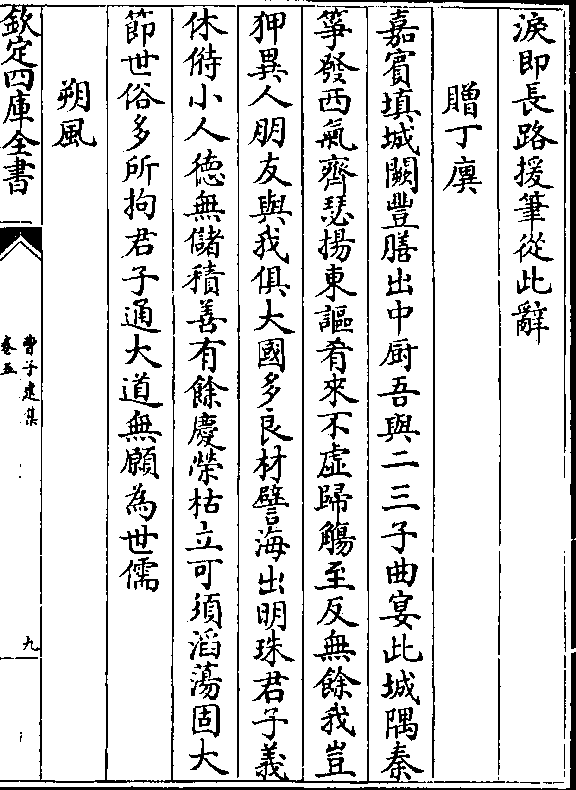 淚即長路援筆從此辭
贈丁廙
嘉賓填城闕豐膳出中厨吾與二三子曲宴此城隅秦
箏發西氣齊瑟揚東謳肴來不虛歸觴至反無餘我豈
狎異人朋友與我俱大國多良材譬海出明珠君子義
休偫小人徳無儲積善有餘慶榮枯立可須滔蕩固大
節世俗多所拘君子通大道無願為世儒
朔風
欽定四庫全書
曹子建集
卷五
九